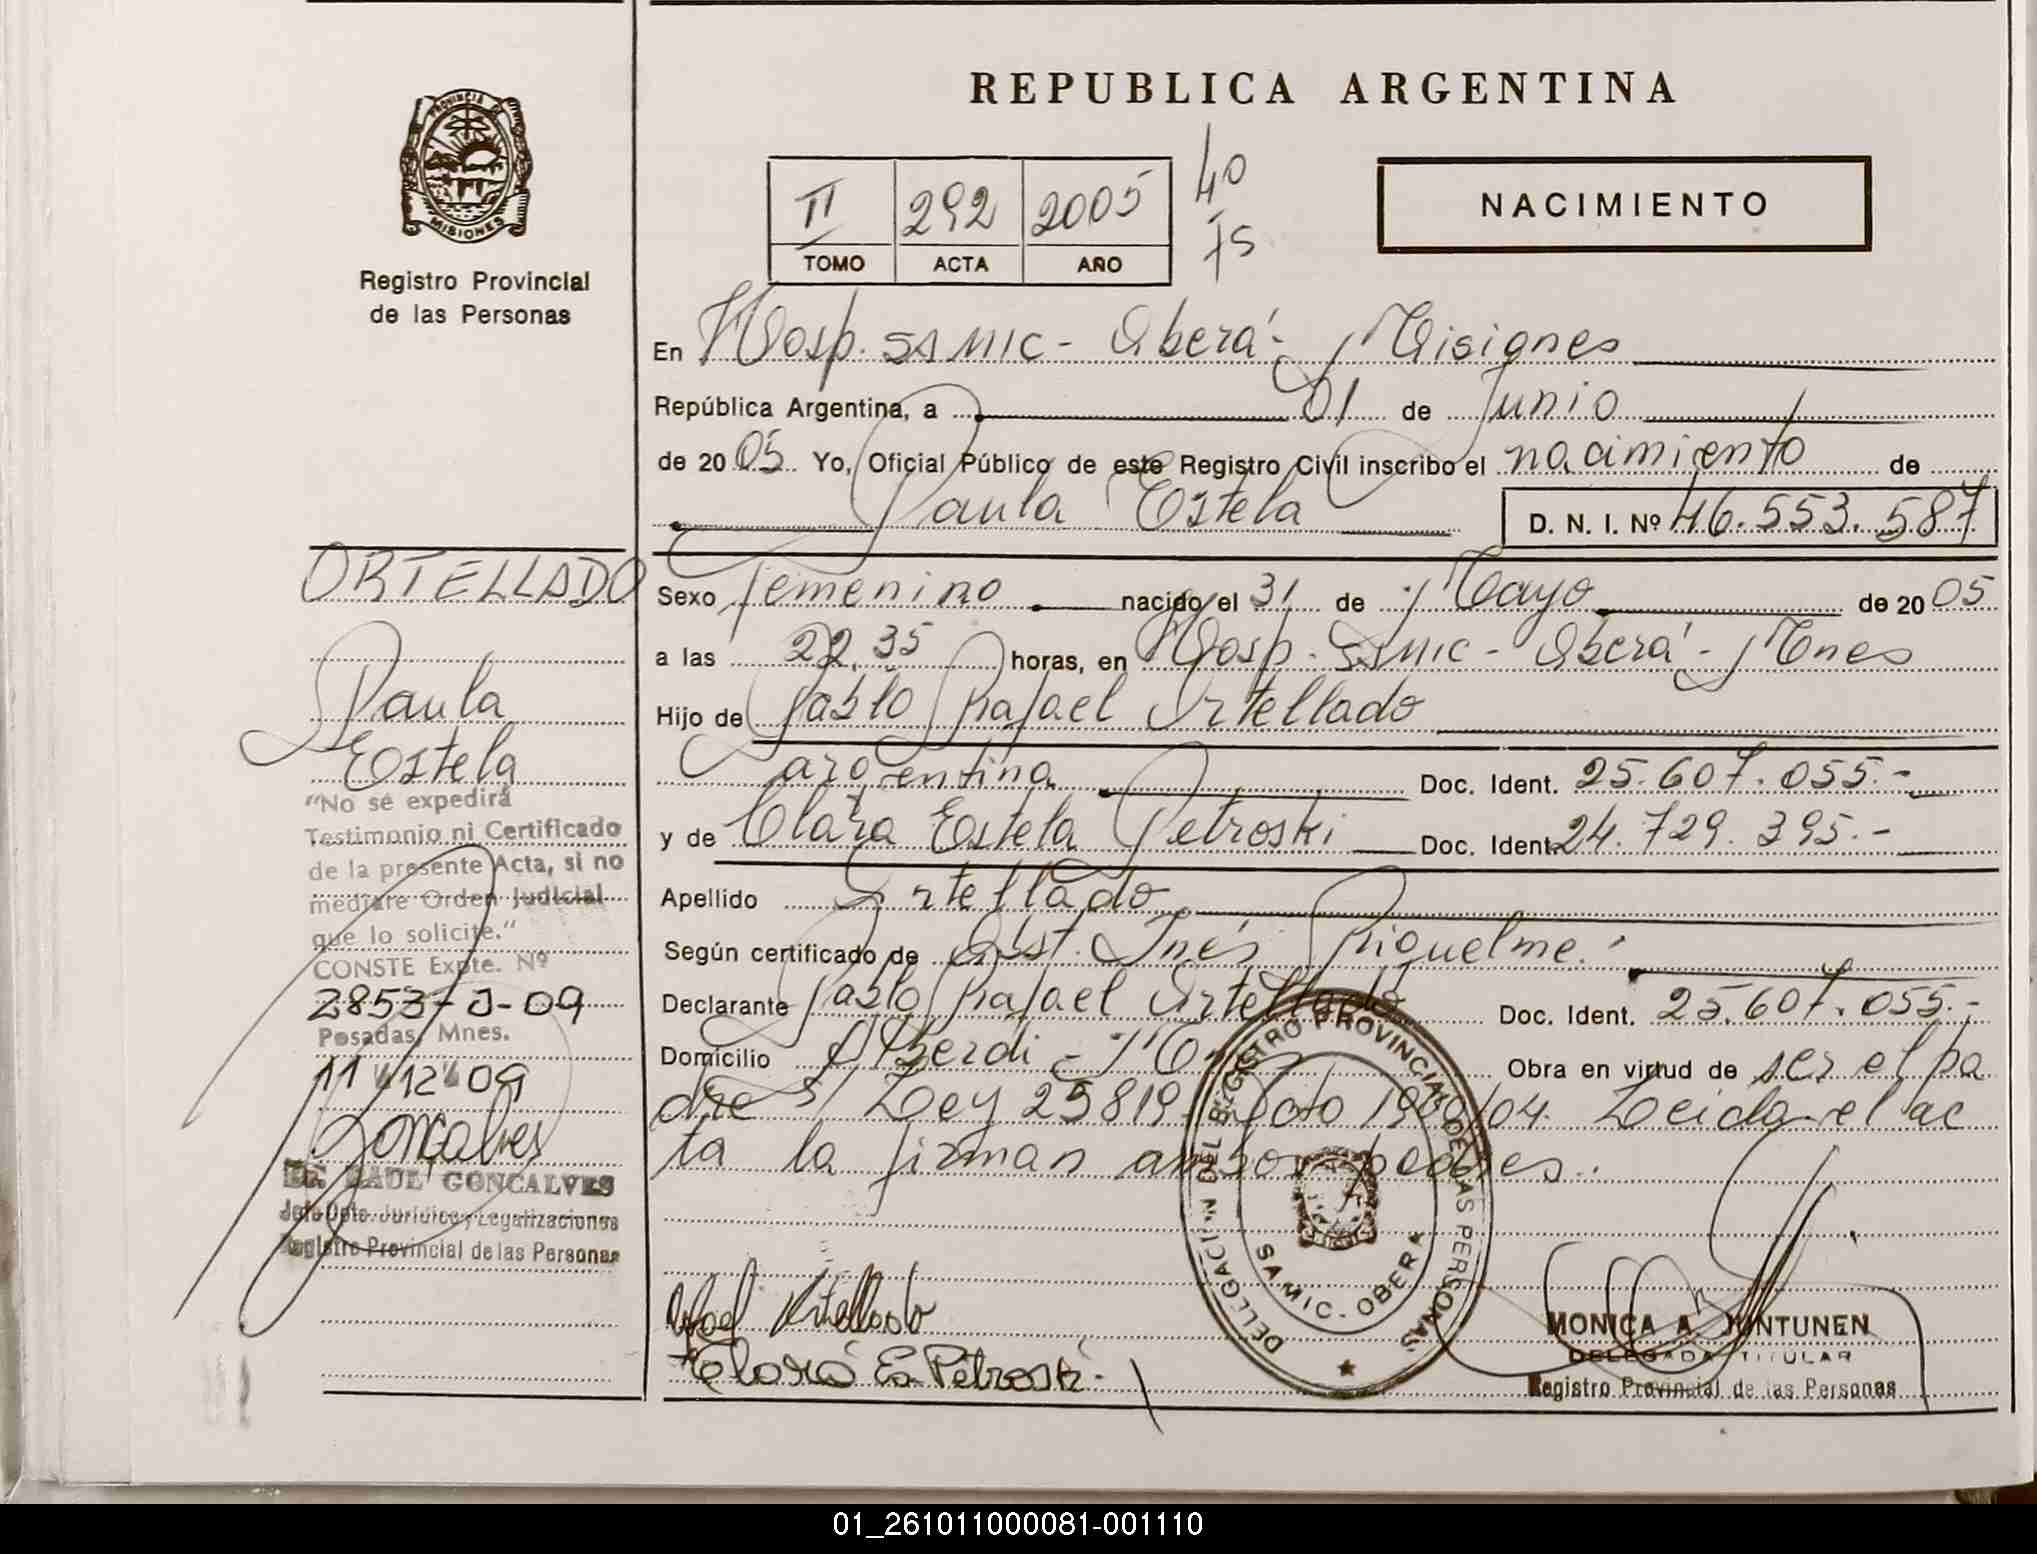 REPUBLICA ARGENTINA
PROVINCIA DE
MISIONES
Registro Provincial
de las Personas
II 292 2005
TOMO ACTA AÑO
40
75
NACIMIENTO
En Hosp. SAMIC - Oberá - Misiones
República Argentina, a 01 de Junio
de 2005 Yo, Oficial Público de este Registro Civil inscribo el nacimiento de
Paula Estela D. N. I. Nº 46.553.587
Sexo femenino nacido el 31 de Mayo de 2005
a las 22,35 horas, en Hosp. SAMIC - Oberá - Mnes
Hijo de Pablo Rafael Ortellado
argentina Doc. Ident. 25.607.055.-
y de Clara Estela Petroski Doc. Ident. 24.729.395.-
Apellido Ortellado
Según certificado de Obst. Inés Riquelme.
Declarante Pablo Rafael Ortellado Doc. Ident. 25.607.055.-
Domicilio Alberdi - Obra en virtud de ser el pa
dre s/ Ley 25819 Dcto 1909/04. Leida el ac
ta la firman ambos padres.
ORTELLADO
Paula
Estela
"No se expedirá
Testimonio ni Certificado
de la presente Acta, si no
mediare Orden Judicial
que lo solicite."
CONSTE Expte. Nº
2853-J-09
Posadas, Mnes.
11 12 09
Gonçalves
Dr. RAUL GONCALVES
Jefe Dpto. Jurídico y Legalizaciones
Registro Provincial de las Personas
Rafael Ortellado
Clara E. Petroski.
DELEGACION DEL REGISTRO PROVINCIAL DE LAS PERSONAS
SAMIC - OBERA
MONICA A. JUNTUNEN
DELEGADA TITULAR
Registro Provincial de las Personas
01_261011000081-001110